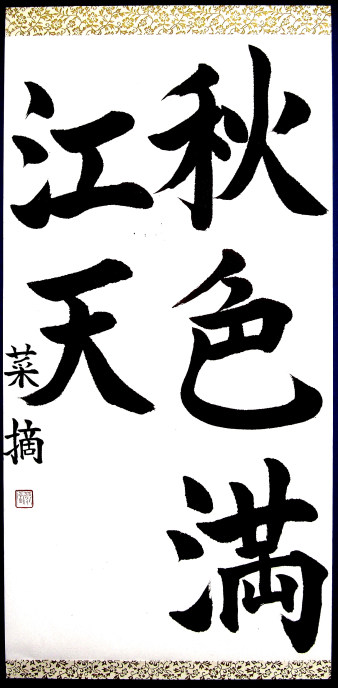 秋色満
江天
菜摘